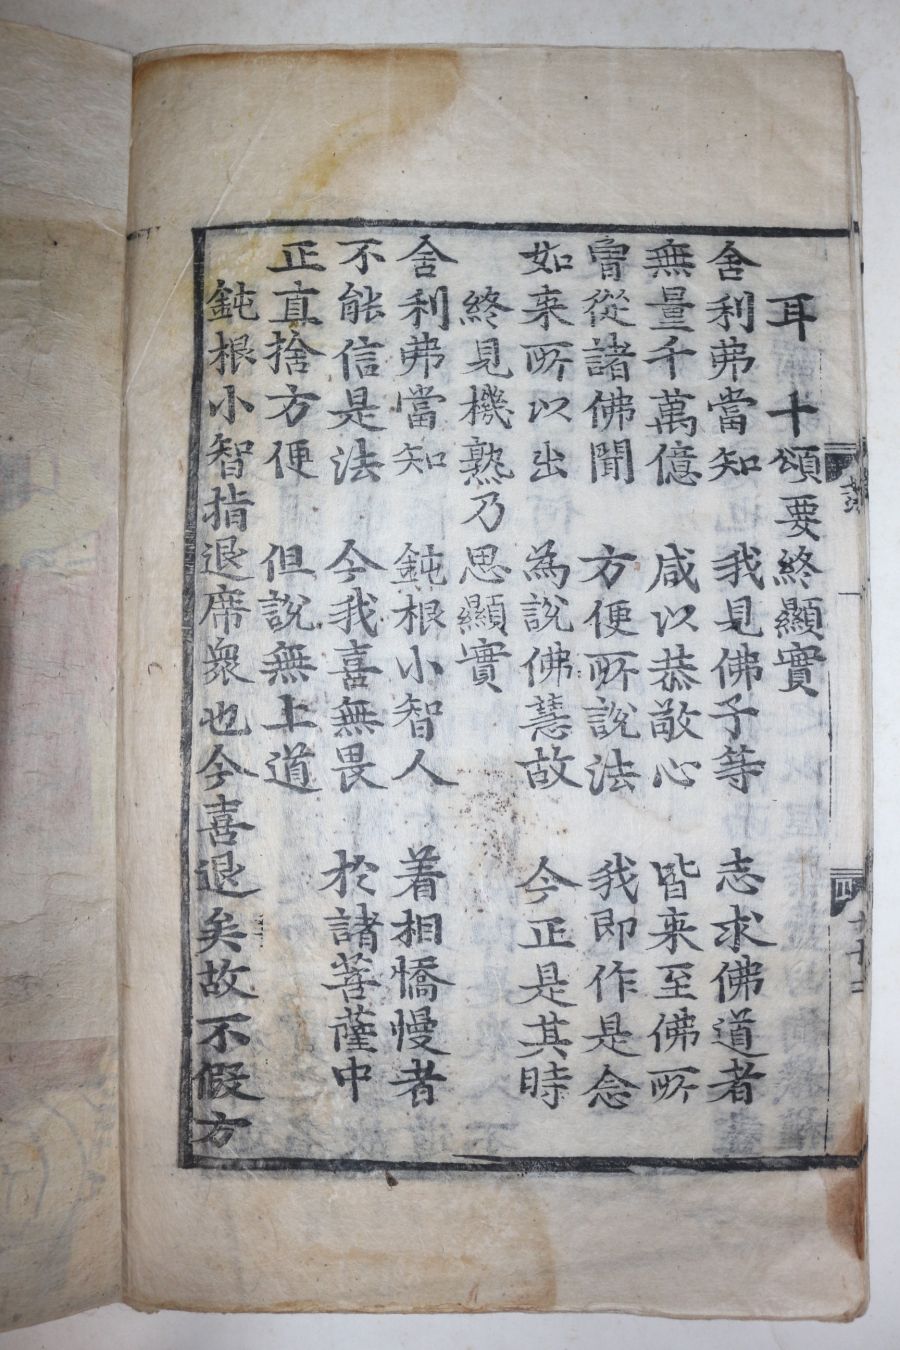 耳　十頌要終顯實
舍利弗當知　我見佛子等　志求佛道者
無量千萬億　咸以恭敬心　皆来至佛所
曾從諸佛聞　方便所說法　我即作是念
如来所以出　為說佛慧故　今正是其時
終見機熟乃思顯實
舍利弗當知　鈍根小智人　着相憍慢者
不能信是法　今我喜無畏　於諸菩薩中
正直捨方便　但說無上道
鈍根小智指退席衆也今喜退矣故不假方